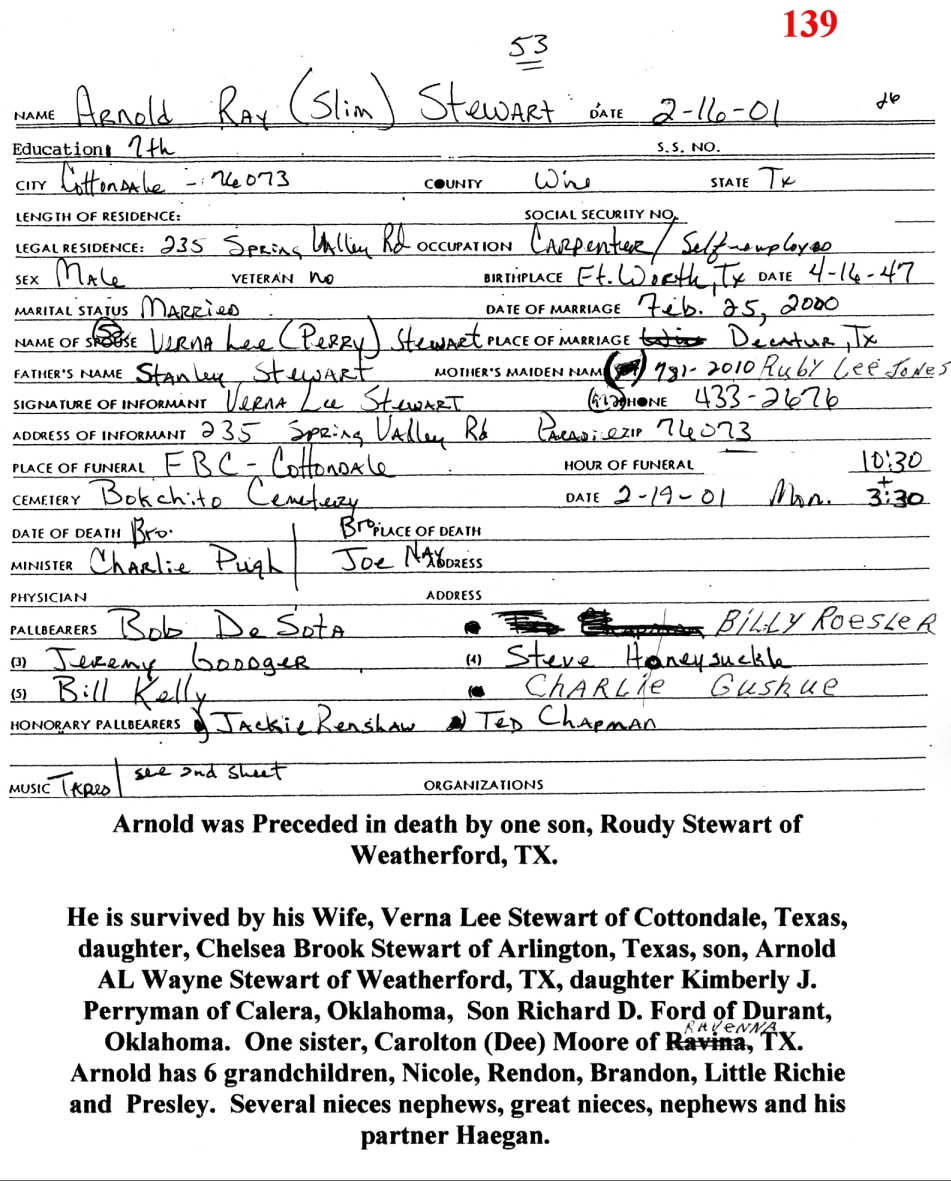 139
53
NAME Arnold Ray (Slim) Stewart DATE 2-16-01 26
Education: 7th S.S. NO.
CITY Cottondale - 76073 COUNTY Wise STATE Tx
LENGTH OF RESIDENCE: SOCIAL SECURITY NO.
LEGAL RESIDENCE: 235 Spring Valley Rd OCCUPATION Carpenter / Self-employed
SEX Male VETERAN no BIRTHPLACE Ft. Worth, Tx DATE 4-16-47
MARITAL STATUS Married DATE OF MARRIAGE Feb. 25, 2000
NAME OF SPOUSE Verna Lee (Perry) Stewart PLACE OF MARRIAGE Decatur, Tx
FATHER'S NAME Stanley Stewart MOTHER'S MAIDEN NAME 2010 Ruby Lee Jones
SIGNATURE OF INFORMANT Verna Lee Stewart PHONE 433-2676
ADDRESS OF INFORMANT 235 Spring Valley Rd Paradise ZIP 76073
PLACE OF FUNERAL FBC - Cottondale HOUR OF FUNERAL 10:30
+
CEMETERY Bokchito Cemetery DATE 2-19-01 Mon. 3:30
DATE OF DEATH Bro. Bro. PLACE OF DEATH
MINISTER Charlie Pugh Joe Nay ADDRESS
PHYSICIAN ADDRESS
PALLBEARERS Bob DeSota Chapman Billy Roesler
(3) Jeremy Goodger (4) Steve Honeysuckle
(5) Bill Kelly Charlie Gushue
HONORARY PALLBEARERS Jackie Renshaw Ted Chapman
MUSIC Tapes see 2nd sheet ORGANIZATIONS
Arnold was Preceded in death by one son, Roudy Stewart of
Weatherford, TX.
He is survived by his Wife, Verna Lee Stewart of Cottondale, Texas,
daughter, Chelsea Brook Stewart of Arlington, Texas, son, Arnold
AL Wayne Stewart of Weatherford, TX, daughter Kimberly J.
Perryman of Calera, Oklahoma, Son Richard D. Ford of Durant,
RAVENNA
Oklahoma. One sister, Carolton (Dee) Moore of Ravina, TX.
Arnold has 6 grandchildren, Nicole, Rendon, Brandon, Little Richie
and Presley. Several nieces nephews, great nieces, nephews and his
partner Haegan.